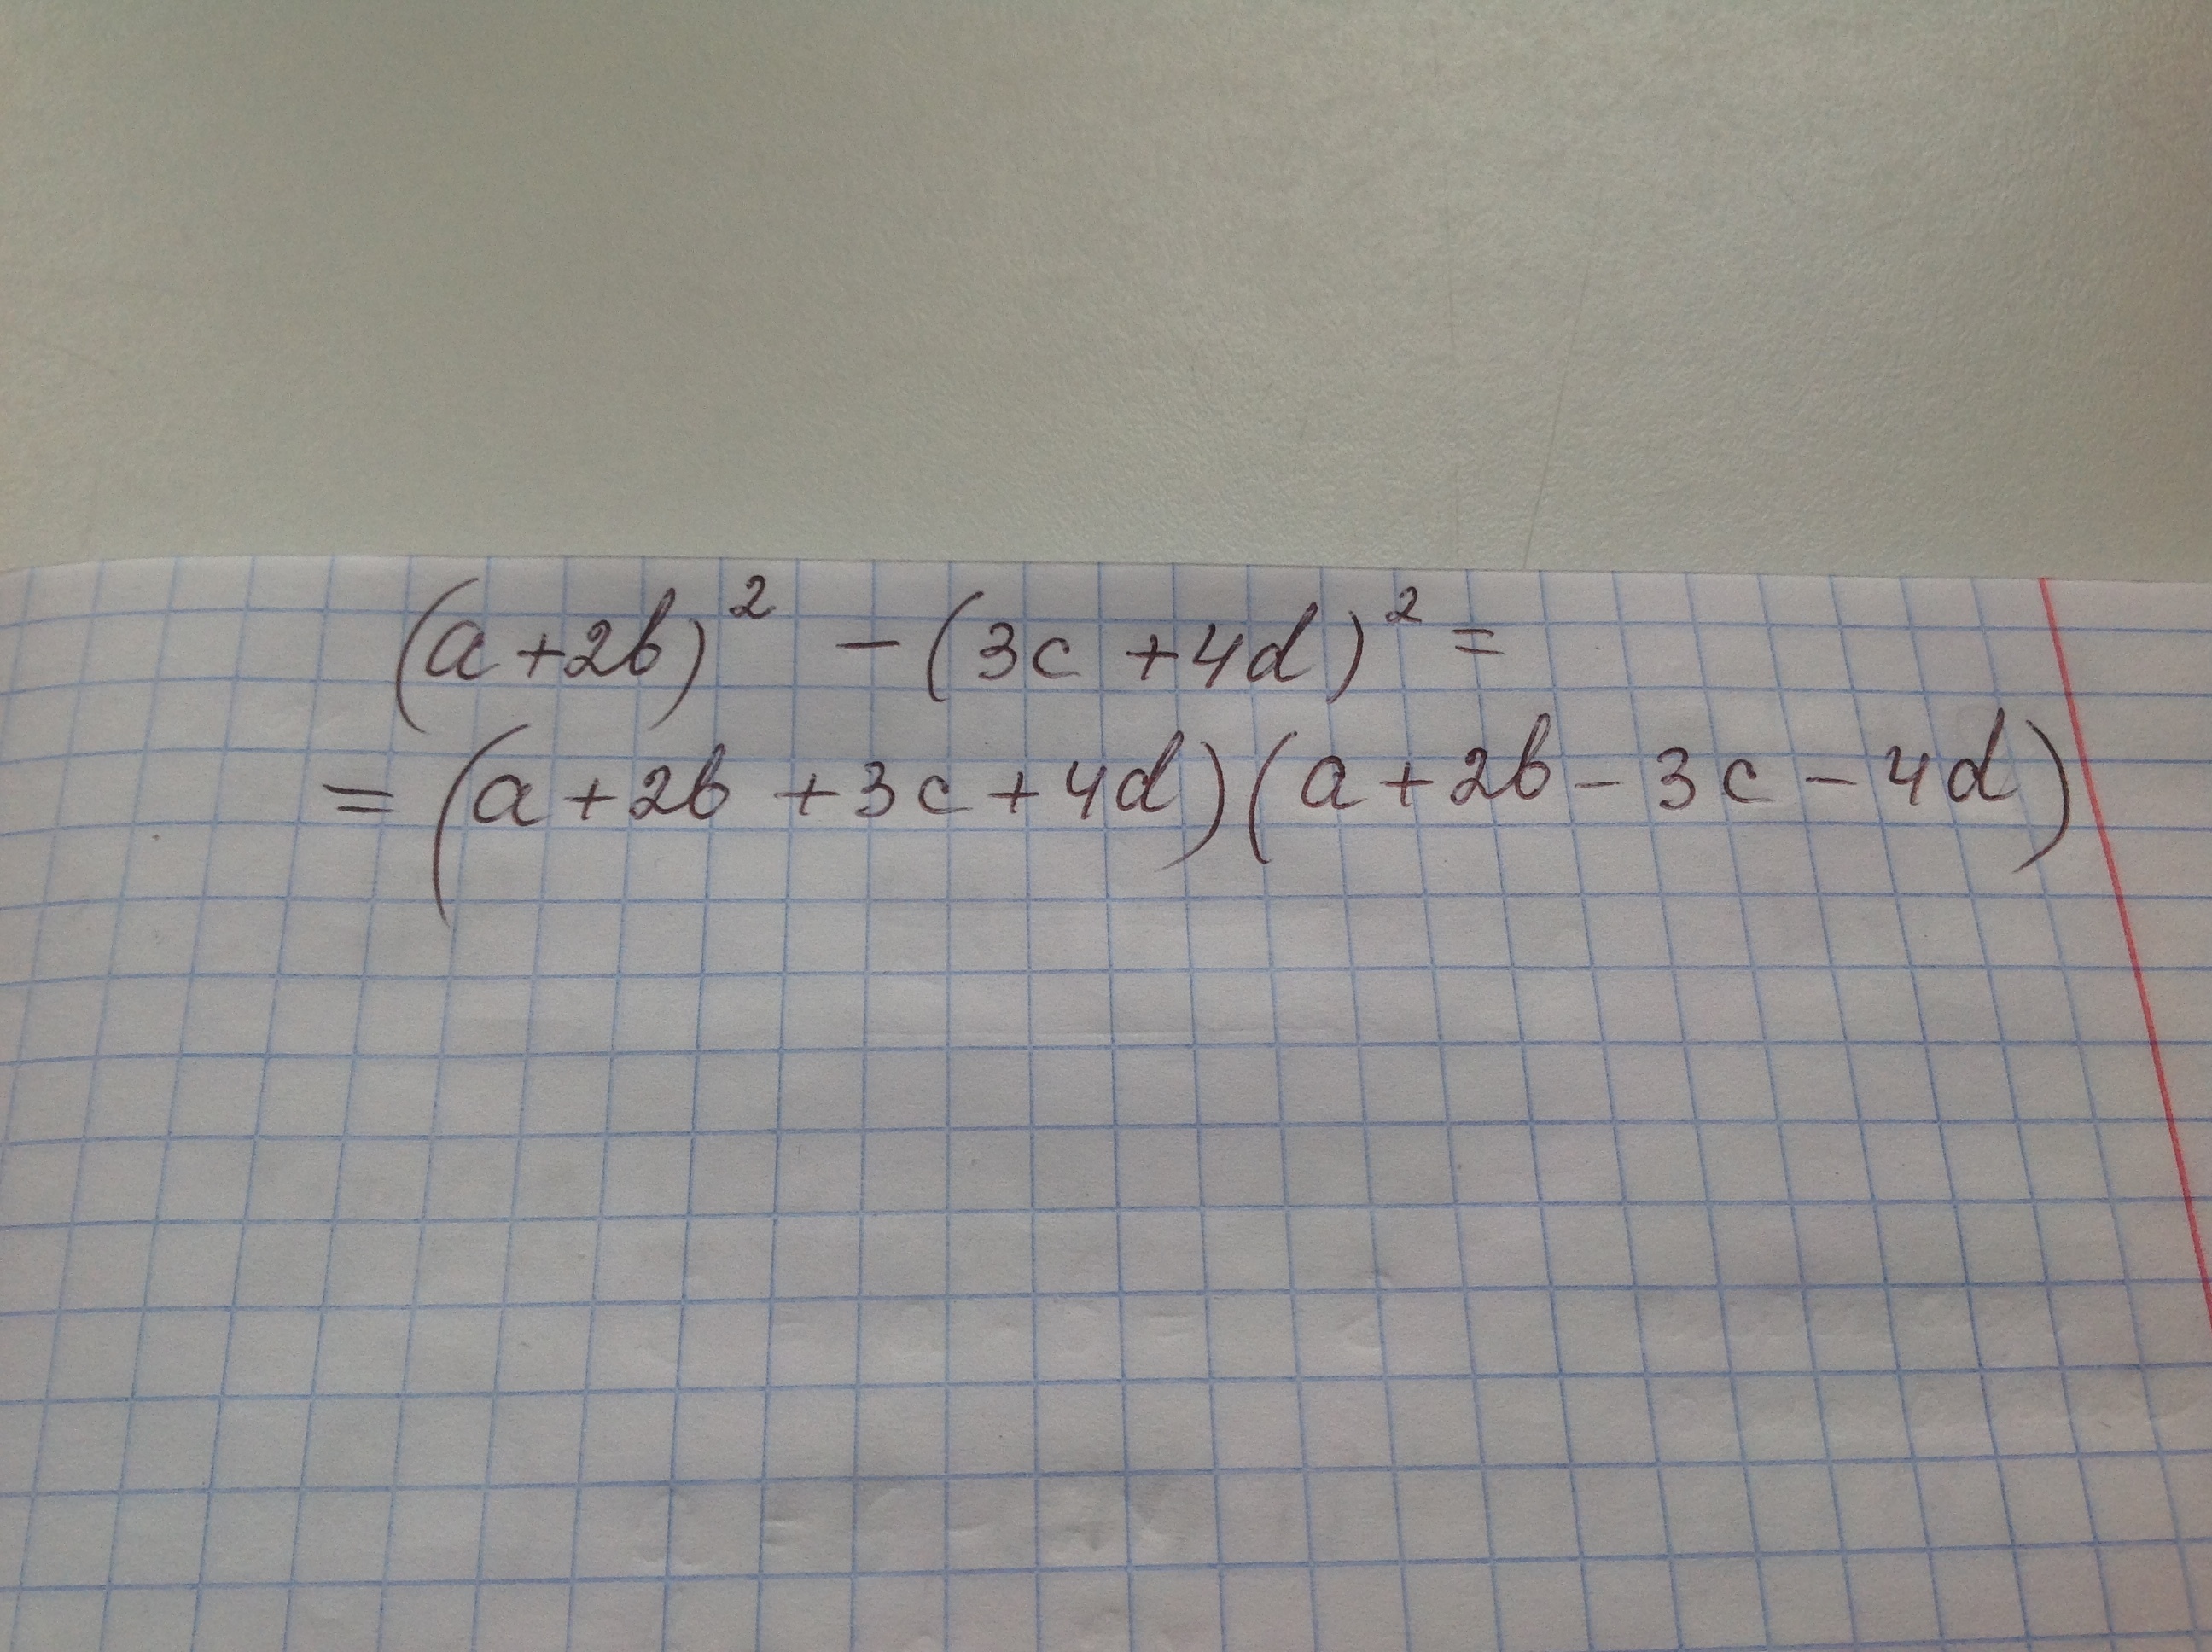 (a+2b)² - (3c+4d)² =
= (a+2b+3c+4d)(a+2b-3c-4d)